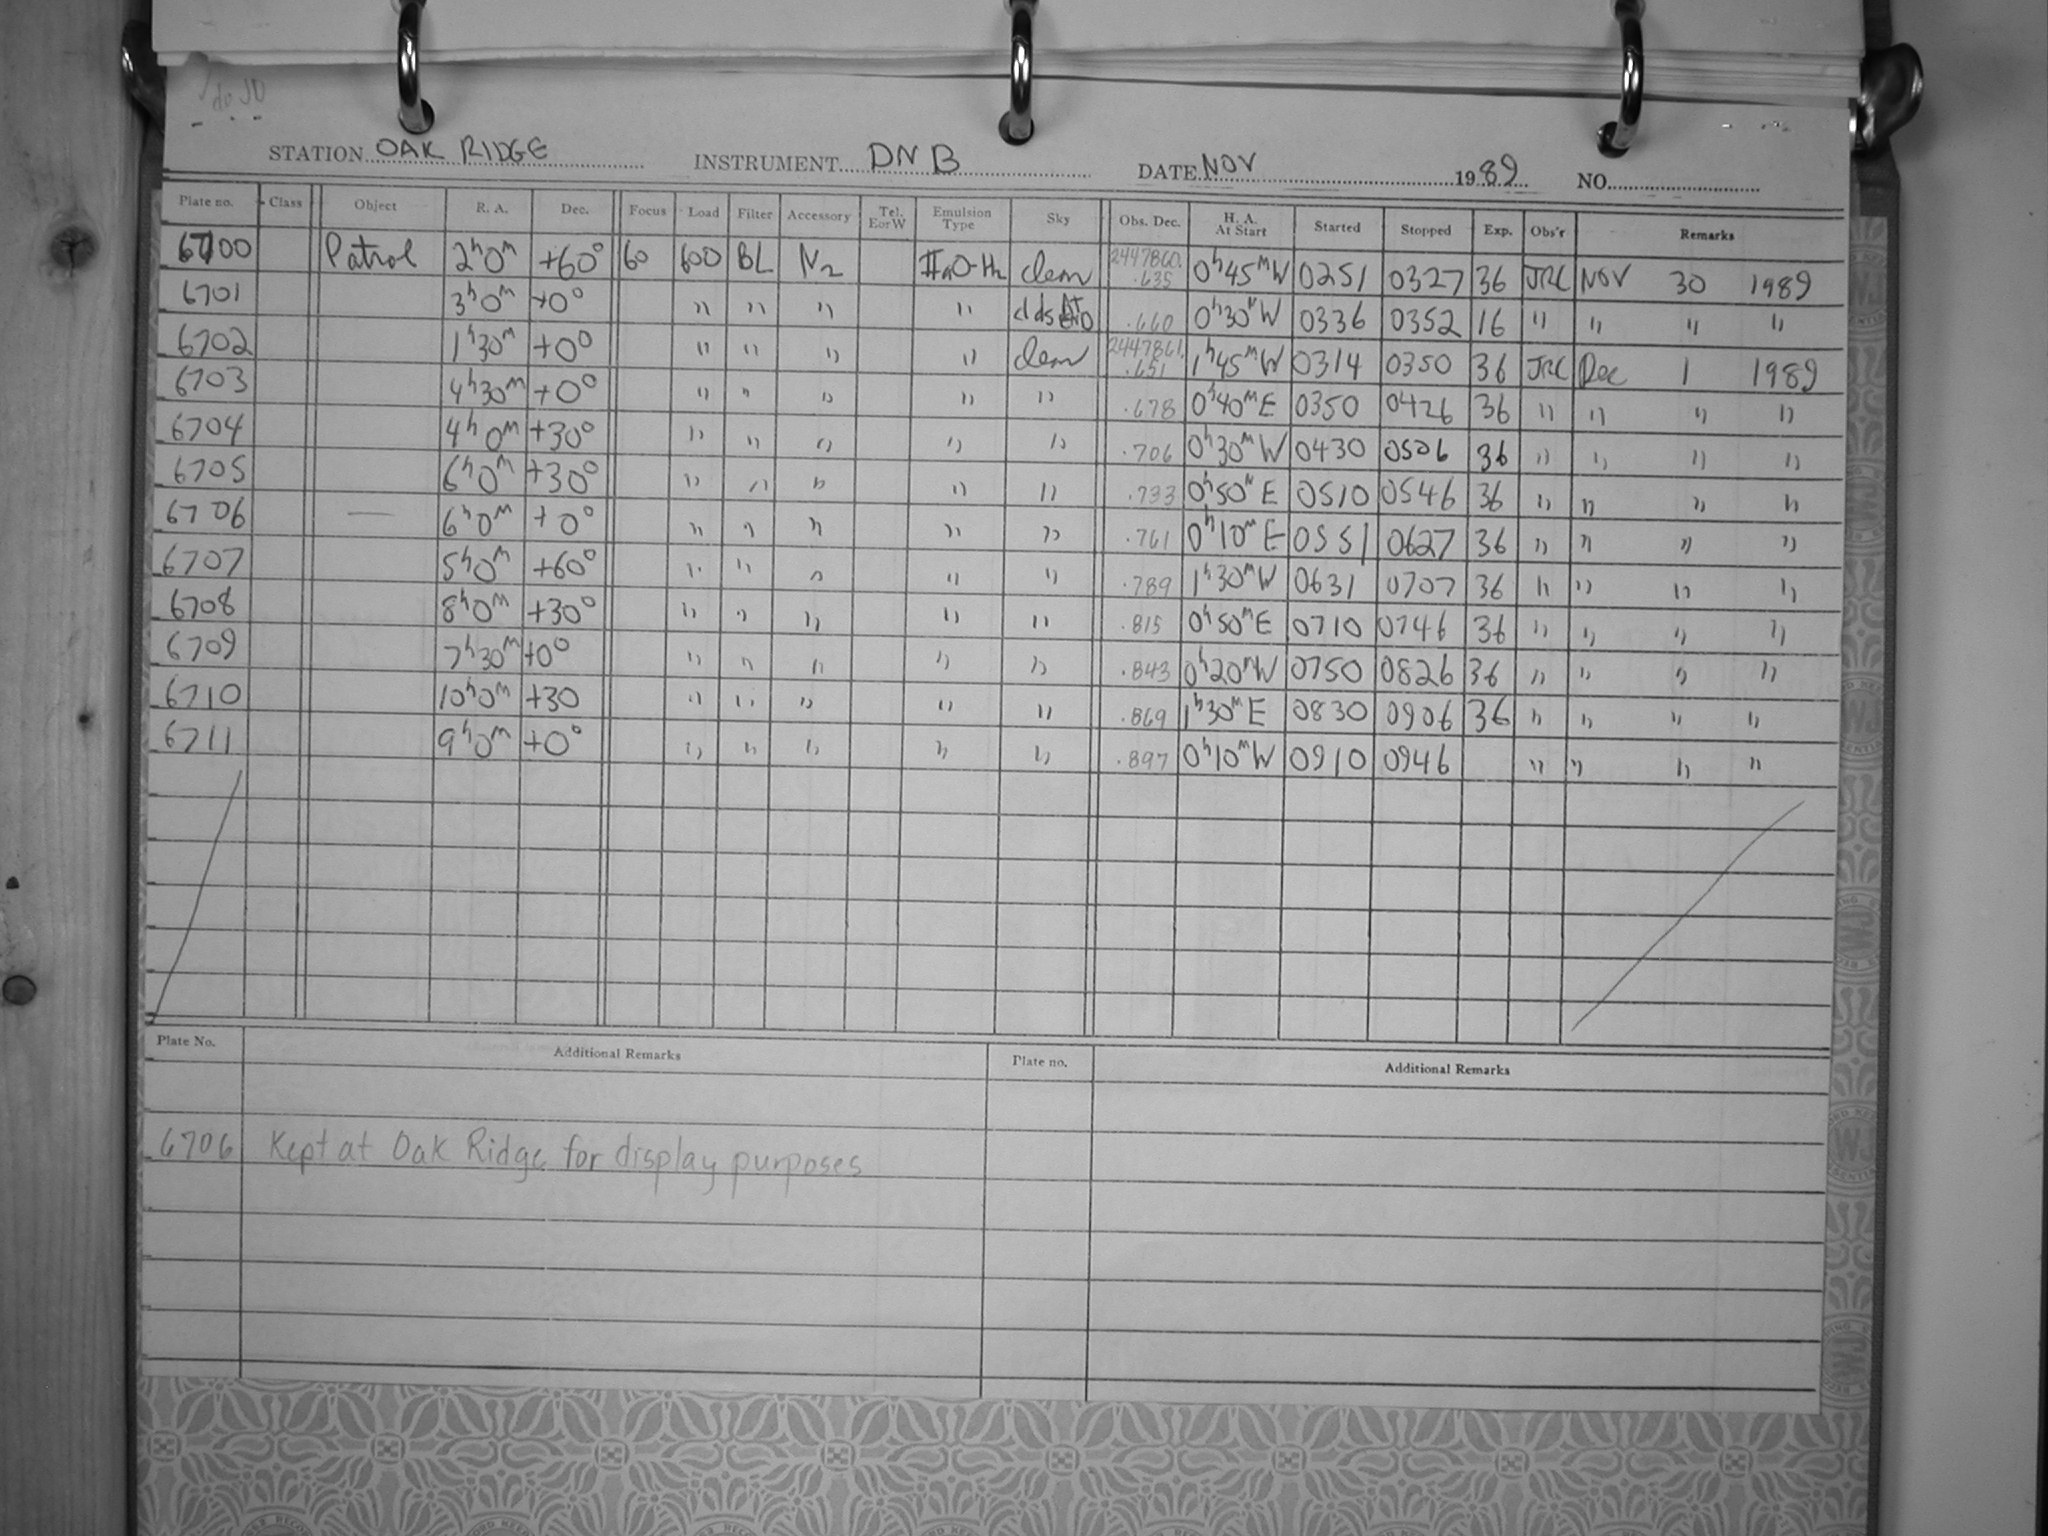 STATION OAK RIDGE INSTRUMENT DNB DATE NOV 1989 NO.
Plate no. Class Object R. A. Dec. Focus Load Filter Accessory Tel. E or W Emulsion Type Sky Obs. Dec. H. A. At Start Started Stopped Exp. Obs'r Remarks
6700 Patrol 2h0m +60° 60 600 BL N2 IIaO-H2 clear 2447860.635 0h45mW 0251 0327 36 JRC NOV 30 1989
6701 3h0m +0° " " " " clds .660 0h30mW 0336 0352 16 " " " "
6702 1h30m +0° " " " " clear 2447861.651 1h45mW 0314 0350 36 JRC Dec 1 1989
6703 4h30m +0° " " " " " .678 0h40mE 0350 0426 36 " " " "
6704 4h0m +30° " " " " " .706 0h30mW 0430 0506 36 " " " "
6705 6h0m +30° " " " " " .733 0h50mE 0510 0546 36 " " " "
6706 — 6h0m +0° " " " " " .761 0h10mE 0551 0627 36 " " " "
6707 5h0m +60° " " " " " .789 1h30mW 0631 0707 36 " " " "
6708 8h0m +30° " " " " " .815 0h50mE 0710 0746 36 " " " "
6709 7h30m +0° " " " " " .843 0h20mW 0750 0826 36 " " " "
6710 10h0m +30 " " " " " .869 1h30mE 0830 0906 36 " " " "
6711 9h0m +0° " " " " " .897 0h10mW 0910 0946 " " " "
Plate No. Additional Remarks Plate no. Additional Remarks
6706 Kept at Oak Ridge for display purposes